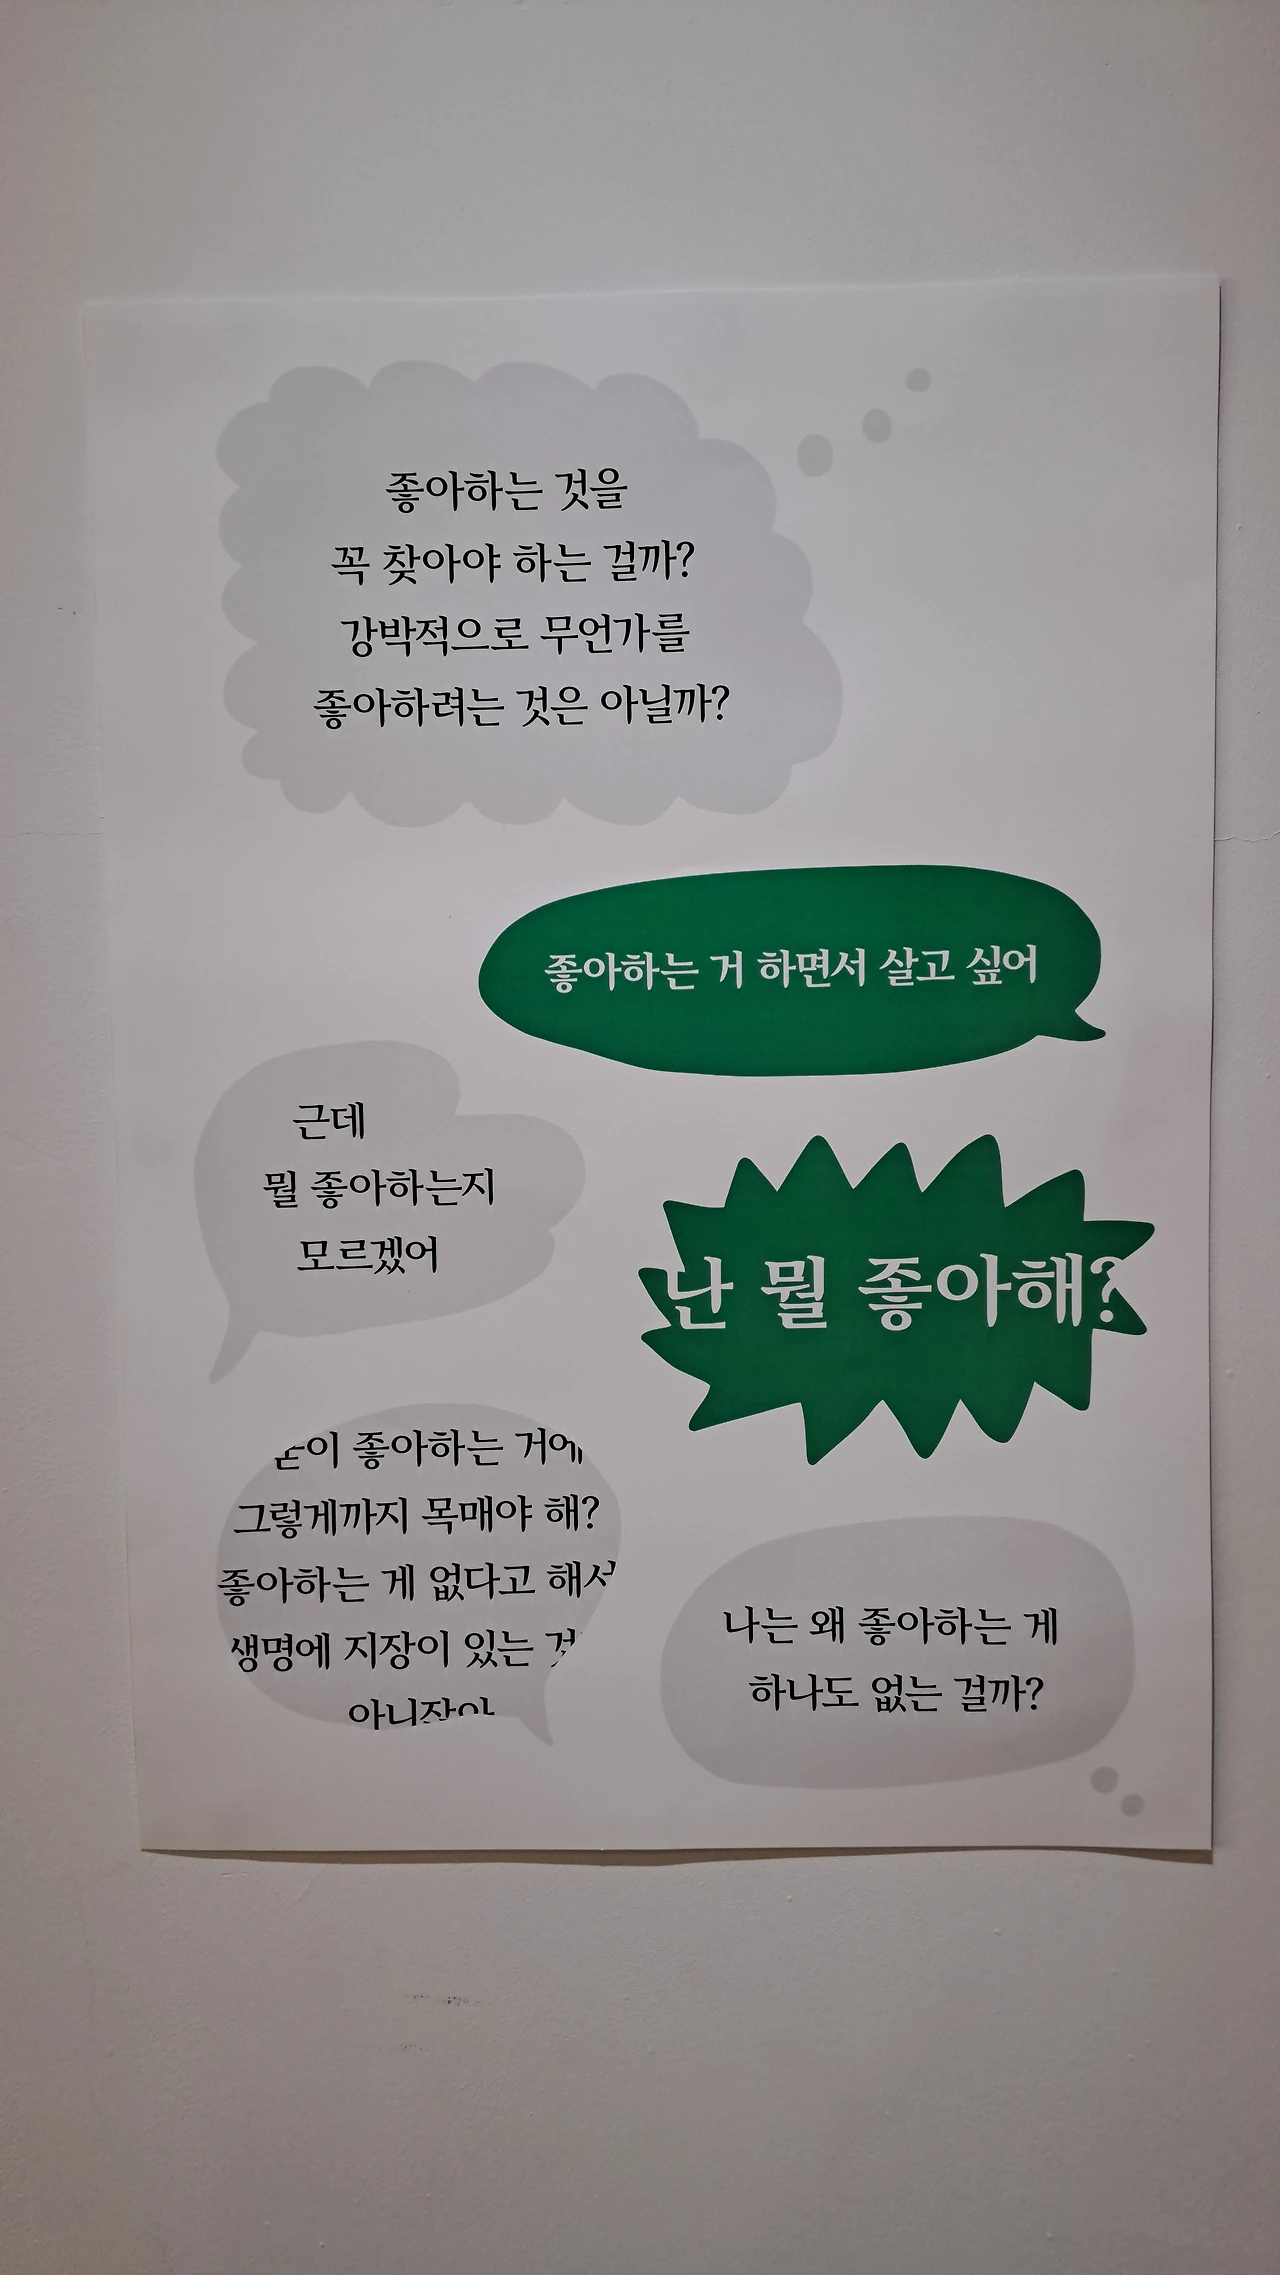 좋아하는 것을
꼭 찾아야 하는 걸까?
강박적으로 무언가를
좋아하려는 것은 아닐까?
좋아하는 거 하면서 살고 싶어
근데
뭘 좋아하는지
모르겠어
난 뭘 좋아해?
좋아하는 거에
그렇게까지 목매야 해?
좋아하는 게 없다고 해서
생명에 지장이 있는
아니잖아
나는 왜 좋아하는 게
하나도 없는 걸까?